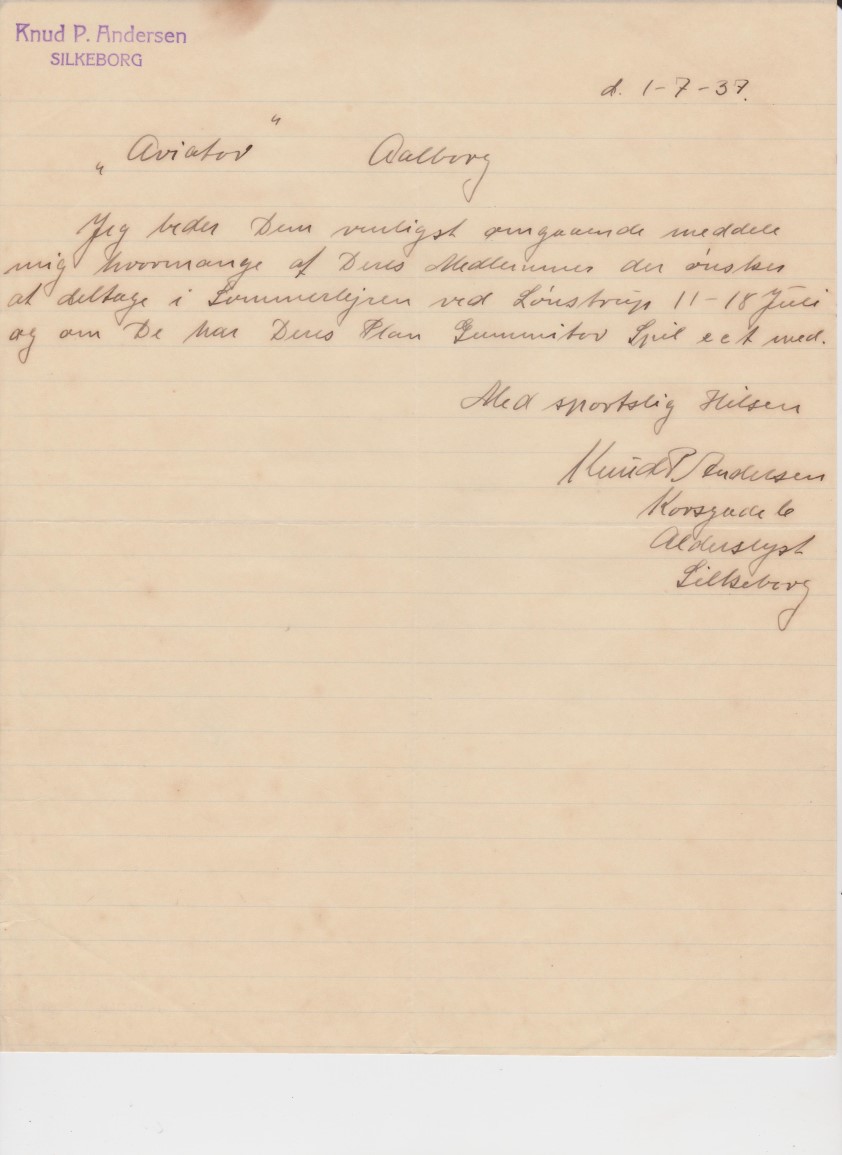 Knud P. Andersen
SILKEBORG
d. 1-7-37.
„Aviator" Aalborg
Jeg beder Dem venligst omgaaende meddele
mig hvormange af Deres Medlemmer der ønsker
at deltage i Sommerlejren ved Lønstrup 11-18 Juli
og om De har Deres Plan Gummitov Spil ect med.
Med sportslig Hilsen
Knud P. Andersen
Korsgade 6
Alderslyst
Silkeborg